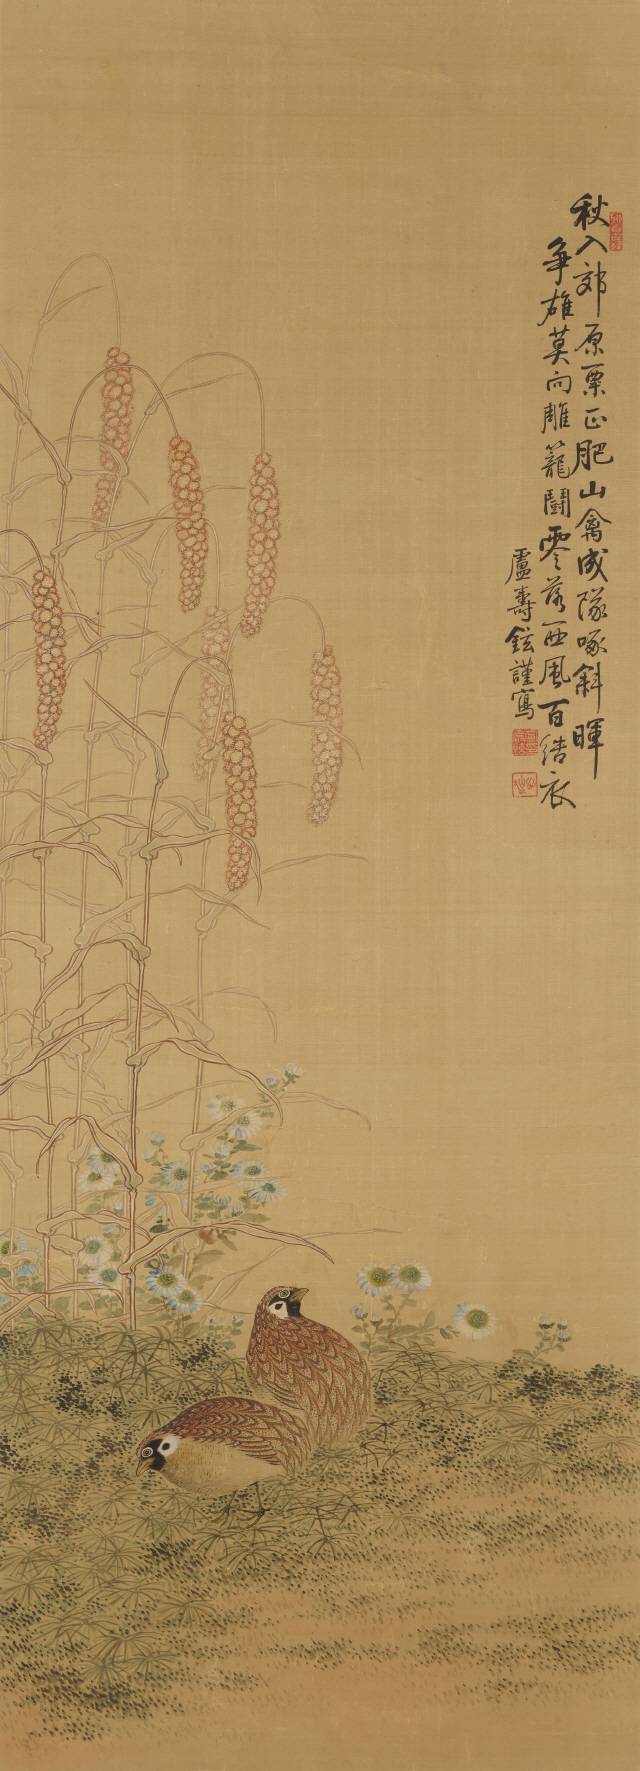 秋入郊原粟正肥山禽成隊啄斜暉
争雄莫向雕籠鬪零落西風百結衣
盧壽鉉謹寫